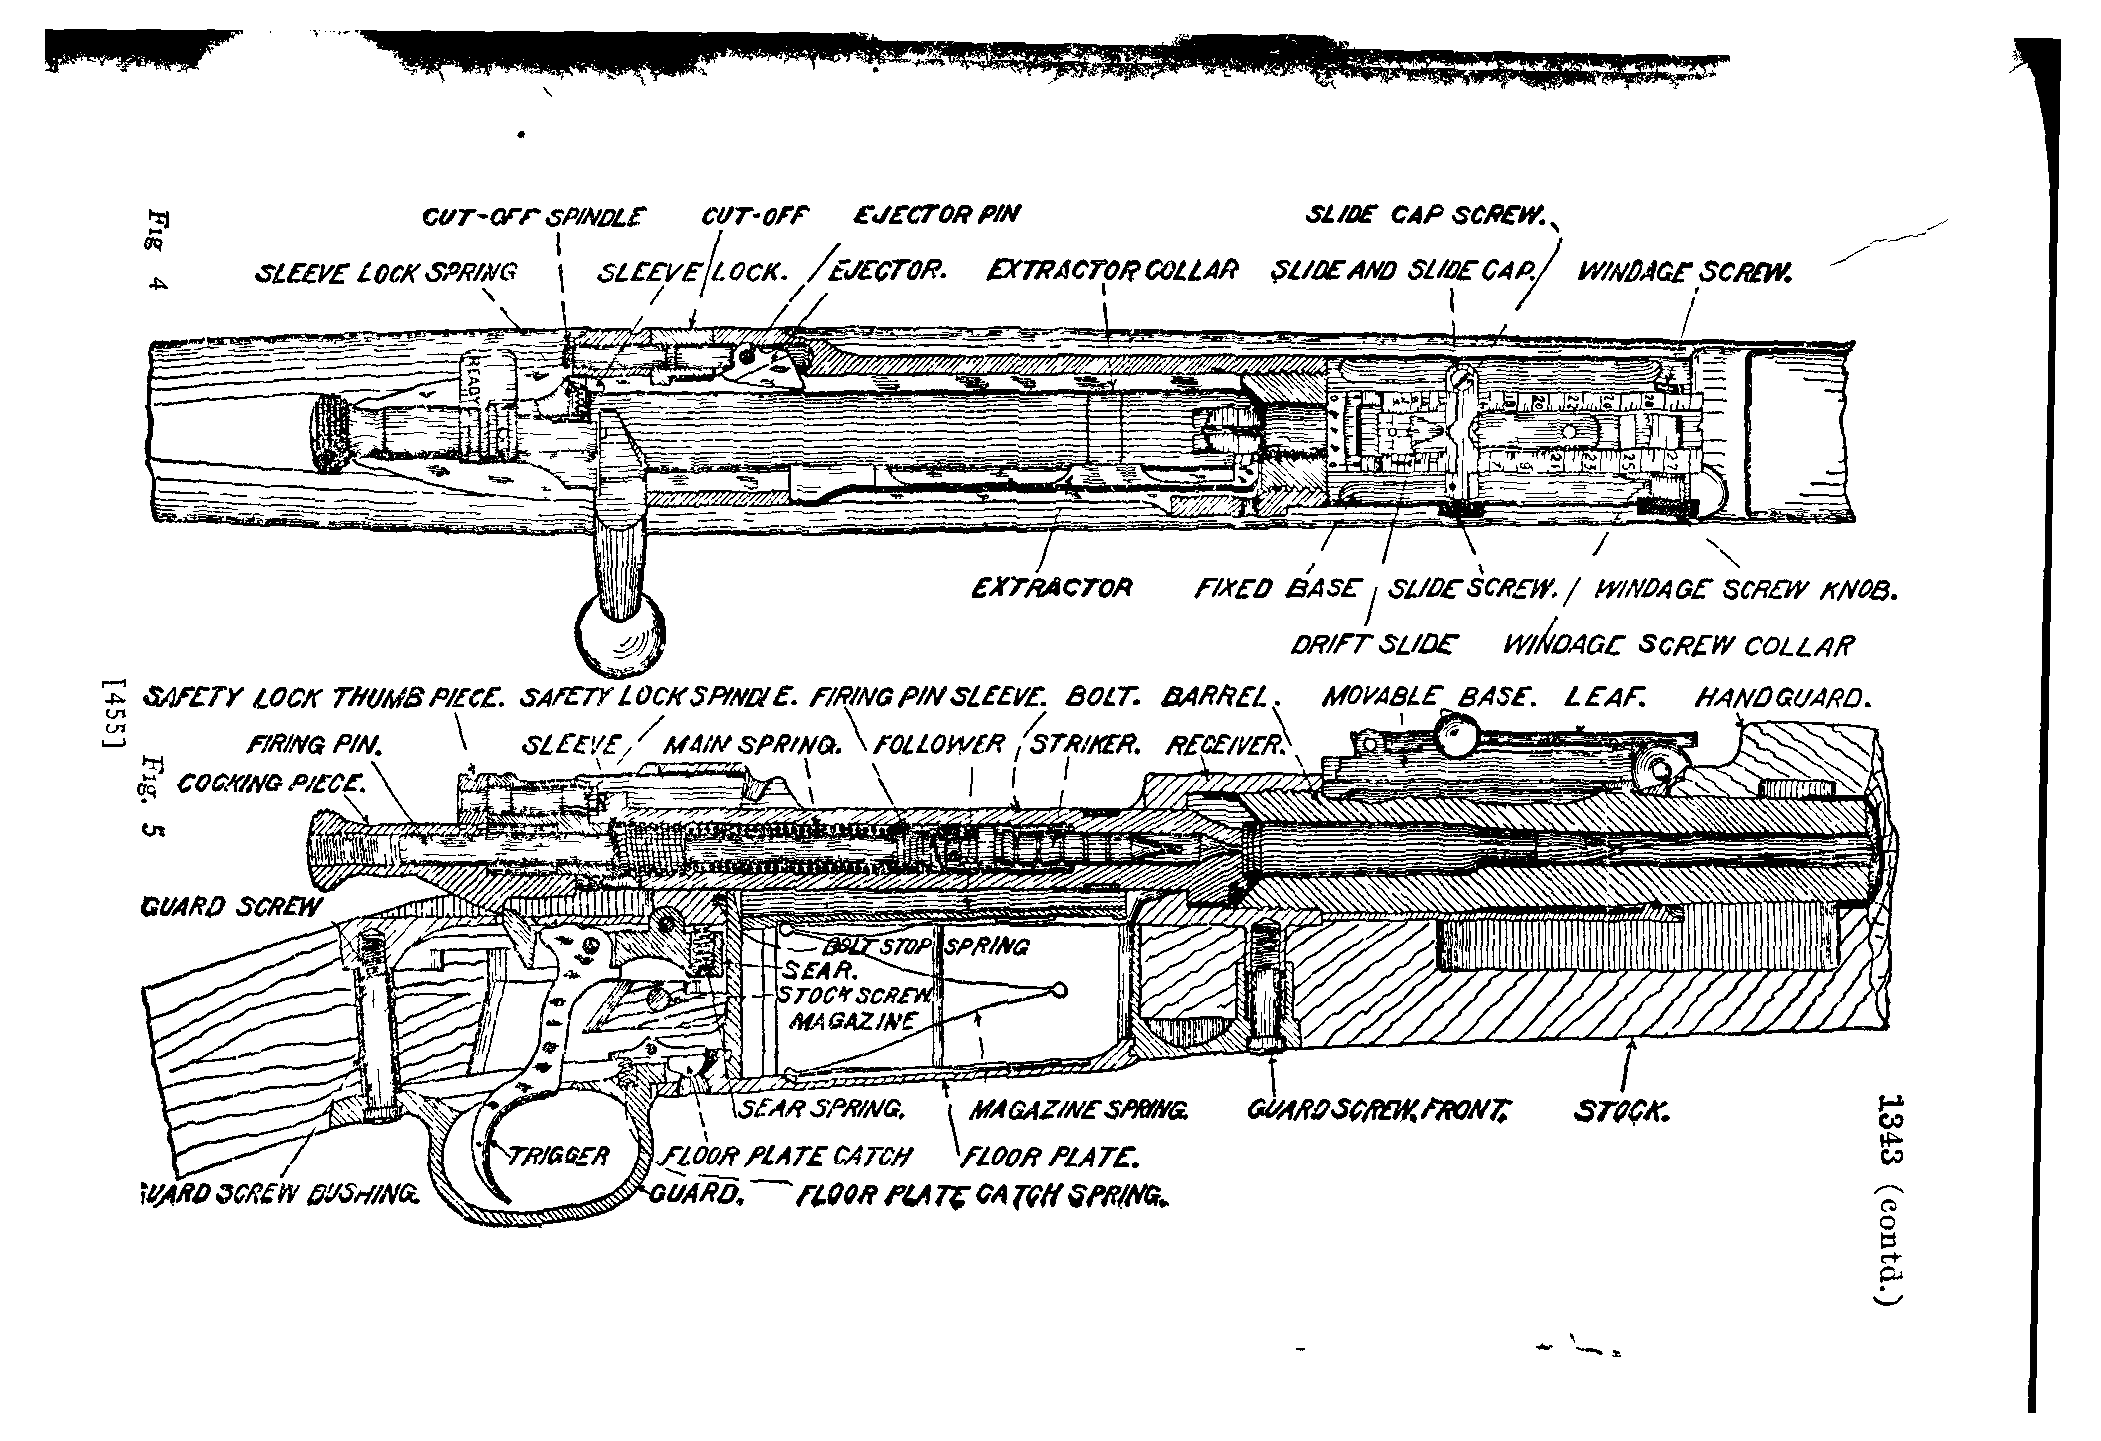 Fig 4
CUT-OFF SPINDLE CUT-OFF EJECTOR PIN SLIDE CAP SCREW.
SLEEVE LOCK SPRING SLEEVE LOCK. EJECTOR. EXTRACTOR COLLAR SLIDE AND SLIDE CAP. WINDAGE SCREW.
READY
EXTRACTOR FIXED BASE SLIDE SCREW. WINDAGE SCREW KNOB.
DRIFT SLIDE WINDAGE SCREW COLLAR
[455]
Fig. 5
SAFETY LOCK THUMB PIECE. SAFETY LOCK SPINDLE. FIRING PIN SLEEVE. BOLT. BARREL. MOVABLE BASE. LEAF. HANDGUARD.
FIRING PIN. SLEEVE MAIN SPRING. FOLLOWER STRIKER. RECEIVER.
COCKING PIECE.
GUARD SCREW
BOLT STOP SPRING
SEAR.
STOCK SCREW
MAGAZINE
SEAR SPRING. MAGAZINE SPRING. GUARD SCREW, FRONT. STOCK.
TRIGGER FLOOR PLATE CATCH FLOOR PLATE.
GUARD SCREW BUSHING. GUARD. FLOOR PLATE CATCH SPRING.
1343 (contd.)